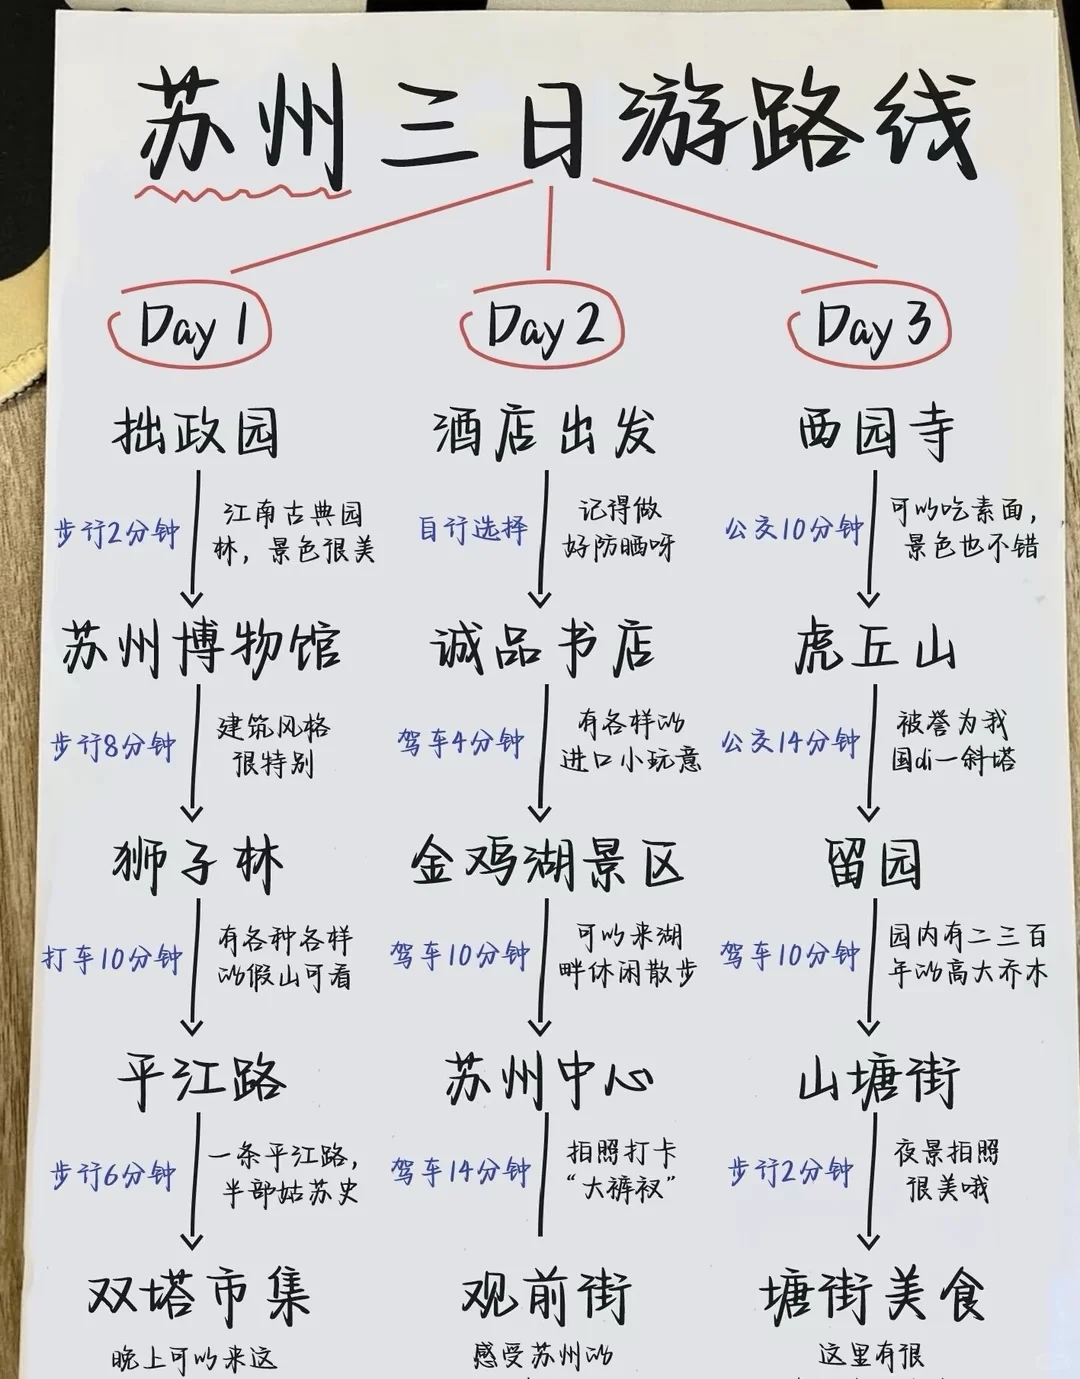 苏州三日游路线
Day 1
拙政园
步行2分钟
江南古典园
林，景色很美
苏州博物馆
步行8分钟
建筑风格
很特别
狮子林
打车10分钟
有各种各样
的假山可看
平江路
步行6分钟
一条平江路，
半部姑苏史
双塔市集
晚上可以来这
Day 2
酒店出发
自行选择
记得做
好防晒呀
诚品书店
驾车4分钟
有各样的
进口小玩意
金鸡湖景区
驾车10分钟
可以来湖
畔休闲散步
苏州中心
驾车14分钟
拍照打卡
“大裤衩”
观前街
感受苏州的
Day 3
西园寺
公交10分钟
可以吃素面，
景色也不错
虎丘山
公交14分钟
被誉为我
国di一斜塔
留园
驾车10分钟
园内有二三百
年的高大乔木
山塘街
步行2分钟
夜景拍照
很美哦
塘街美食
这里有很